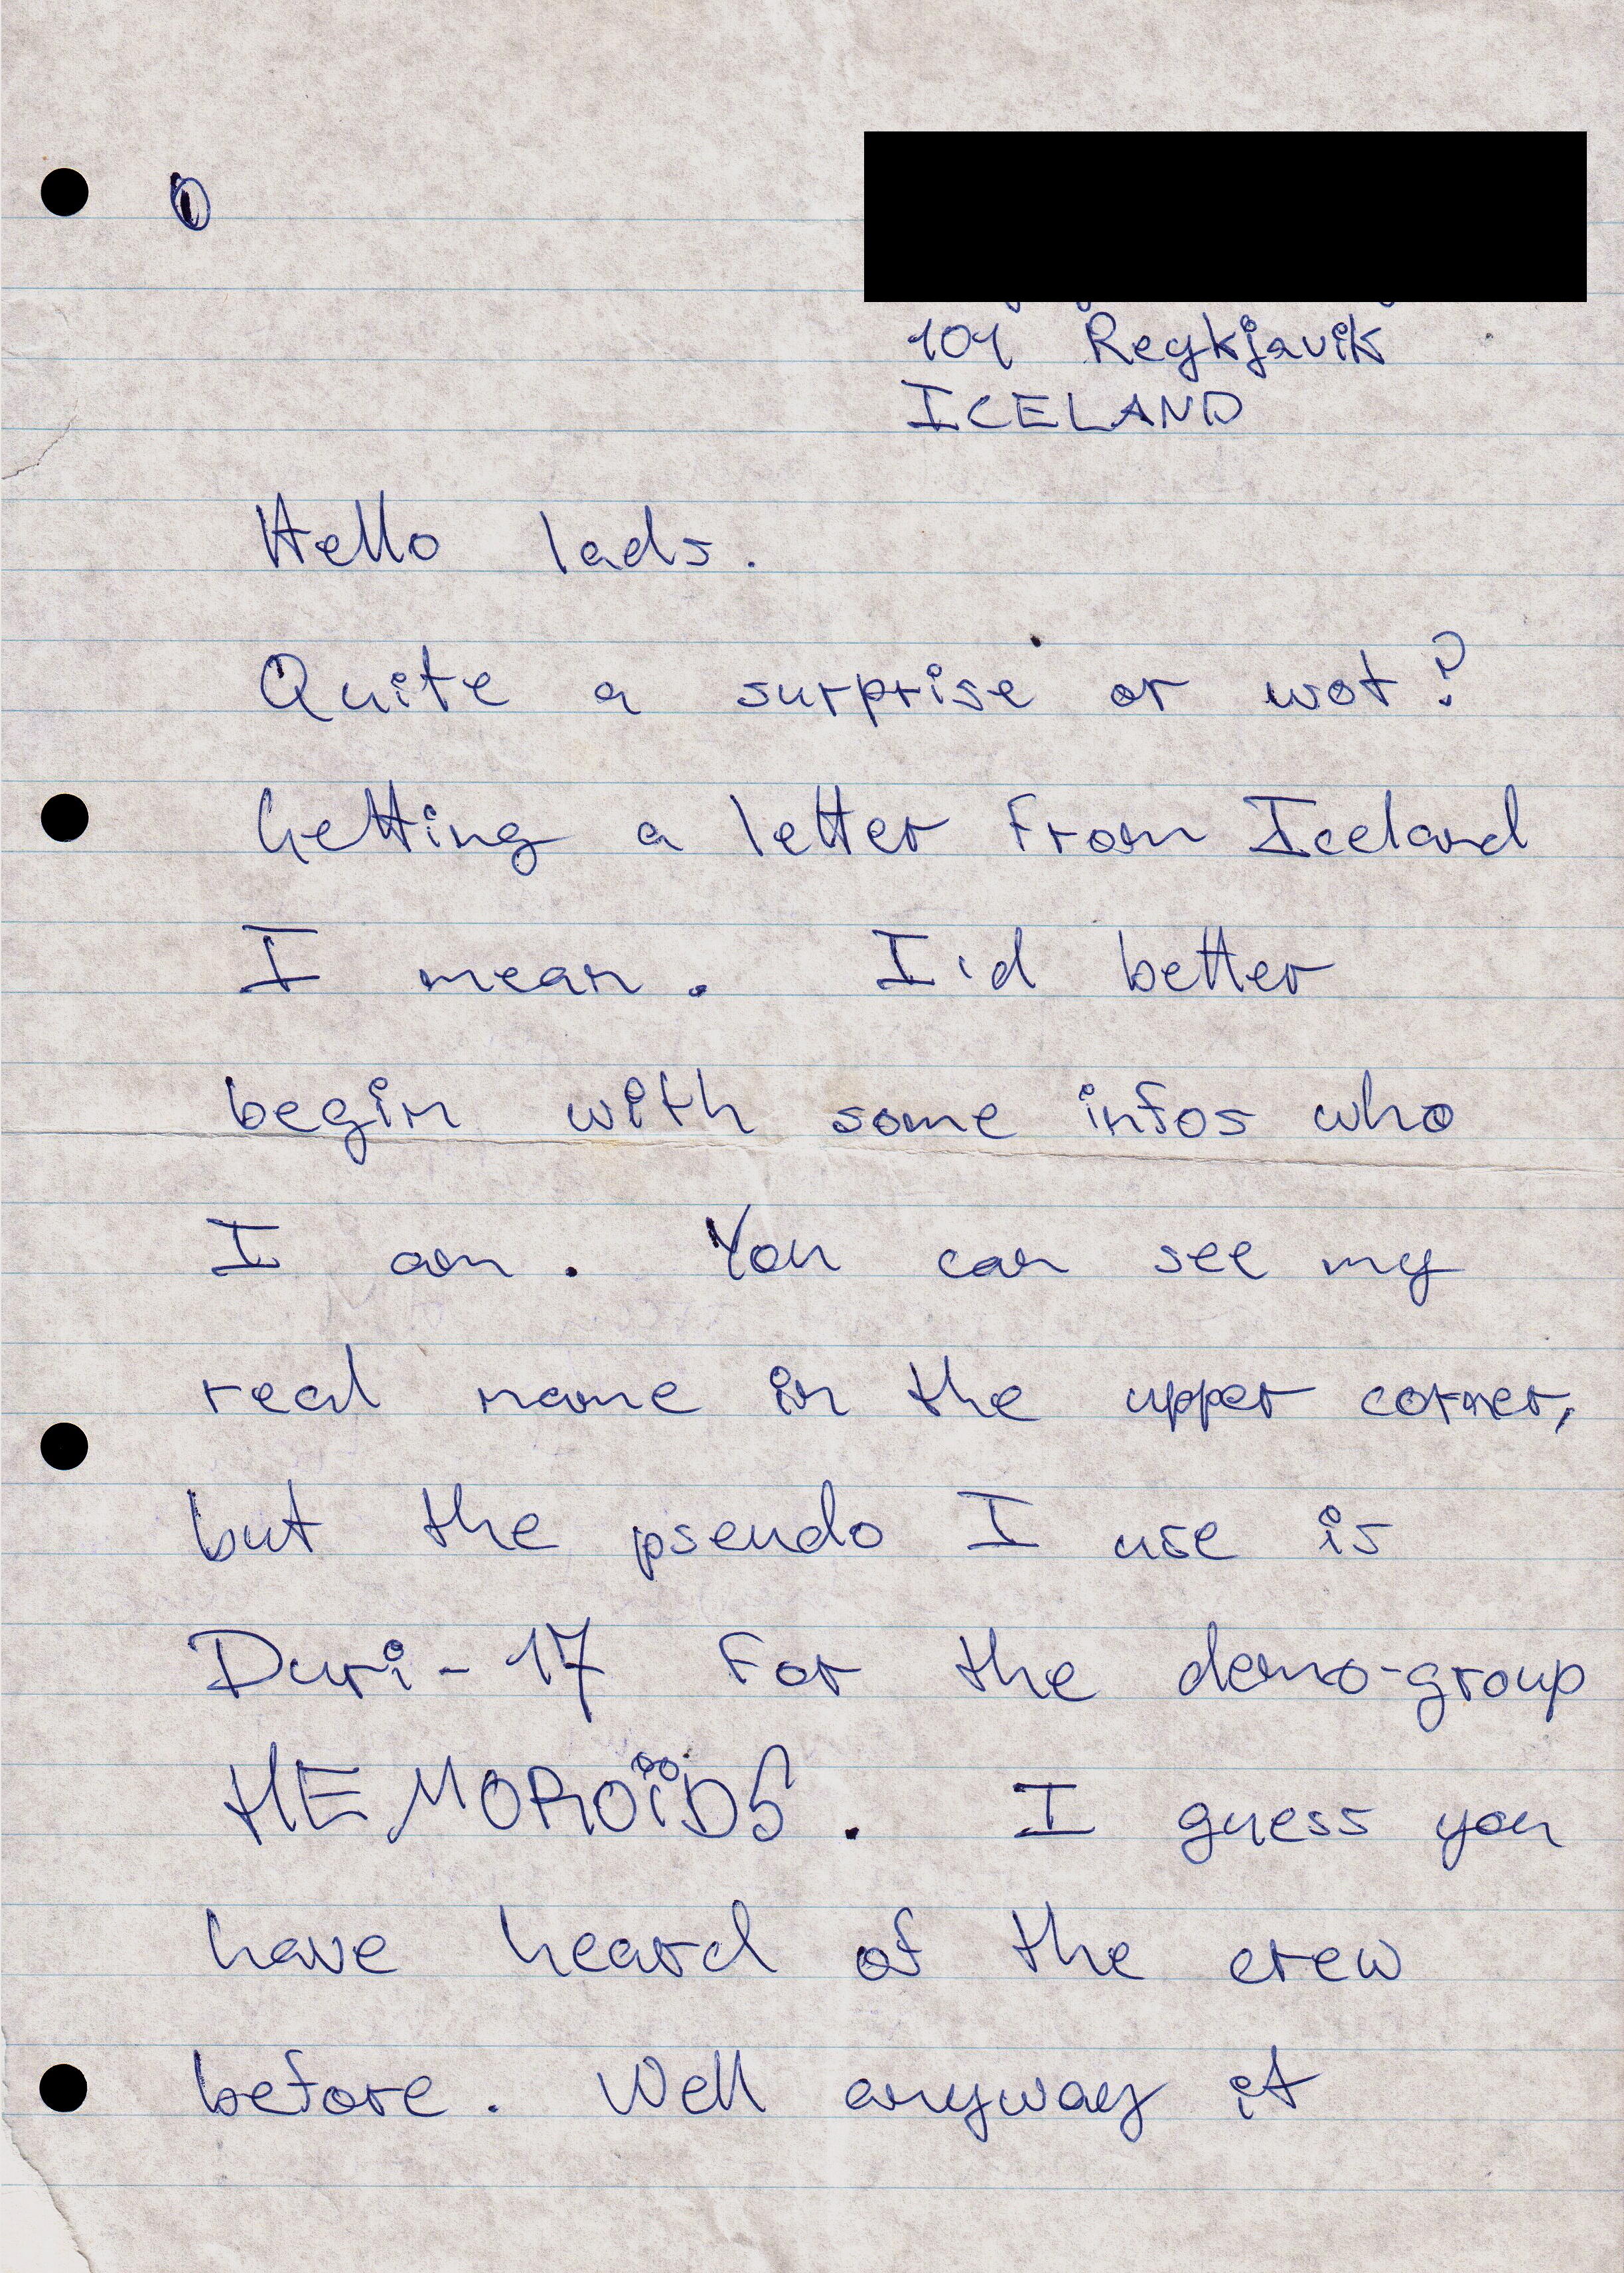 0
101 Reykjavik
ICELAND
Hello lads.
Quite a surprise or wot?
Getting a letter from Iceland
I mean. I'd better
begin with some infos who
I am. You can see my
real name in the upper corner,
but the pseudo I use is
Duri-17 for the demo-group
HEMOROÏDS. I guess you
have heard of the crew
before. Well anyway it